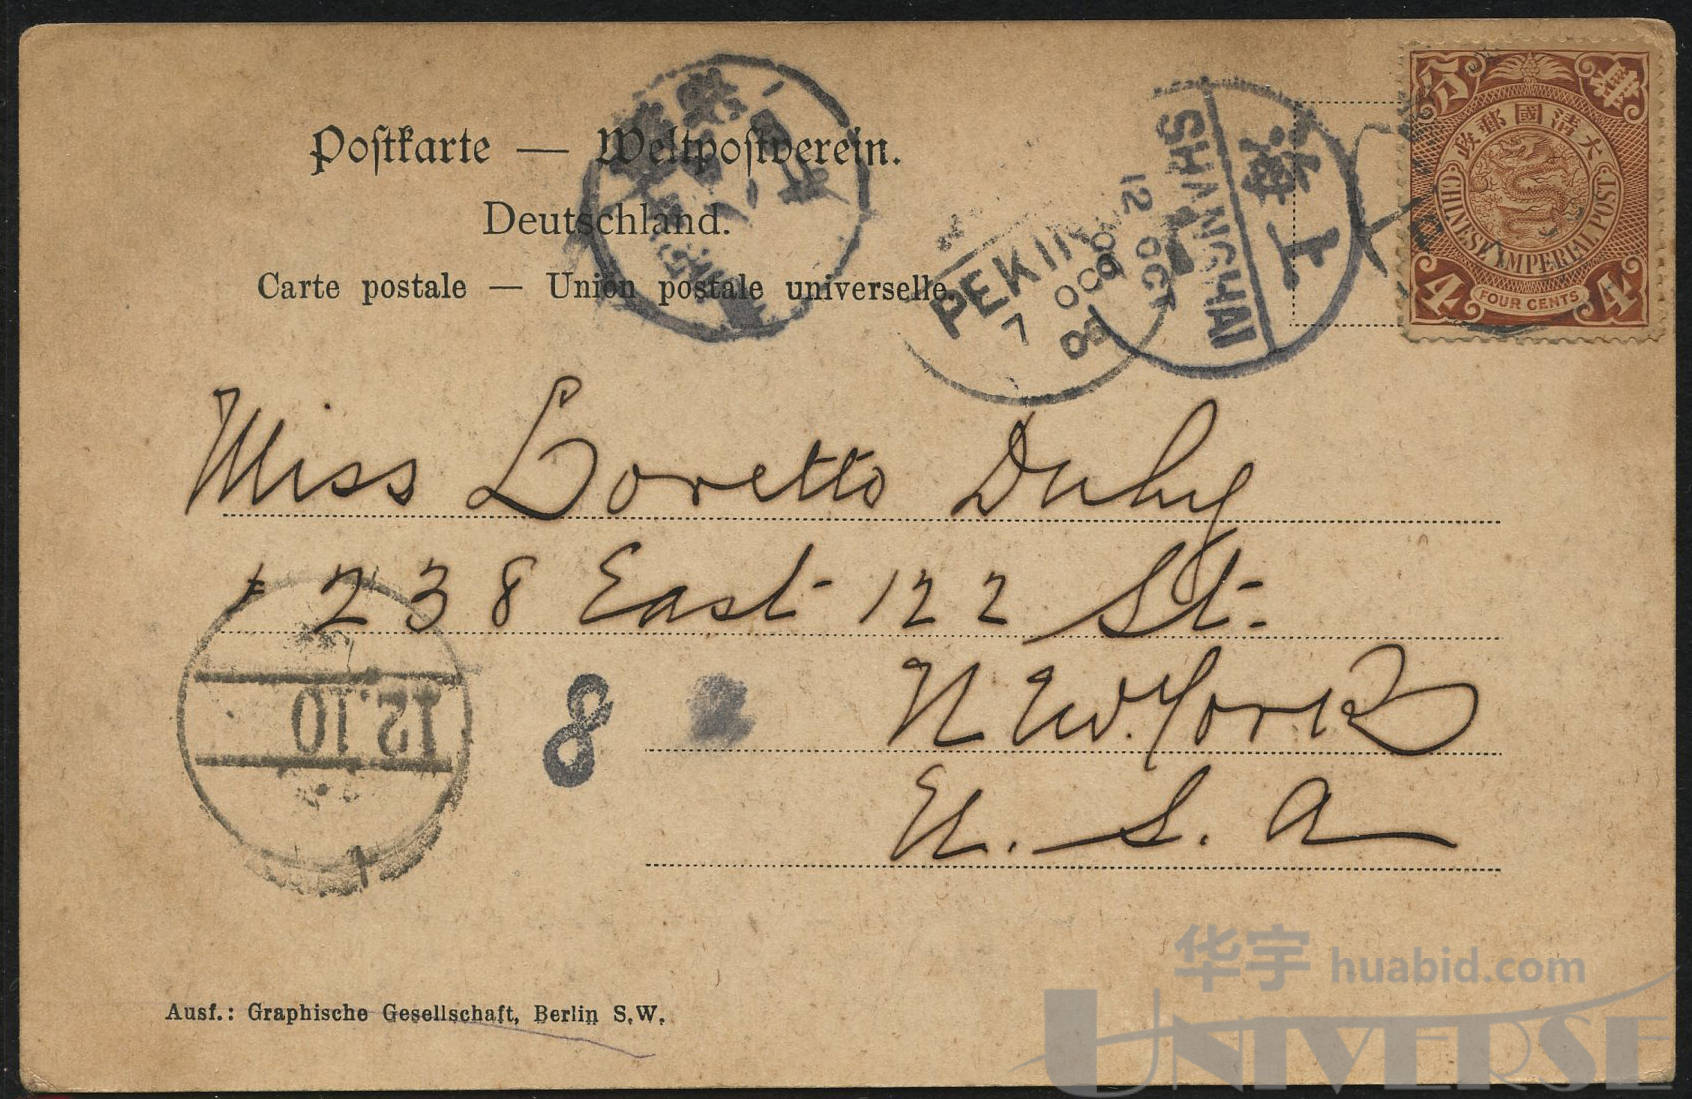 Postkarte — Weltpostverein.
Deutschland.
Carte postale — Union postale universelle.
SHANGHAI
12 OCT 06
上海
PEKIN
7 OCT 06
大清國郵政
CHINESE IMPERIAL POST
4 FOUR CENTS 4
Miss Loretto Duhy
238 East 122 St.
New York
U. S. A
12.10
8
Ausf.: Graphische Gesellschaft, Berlin S.W.
华宇 huabid.com
UNIVERSE